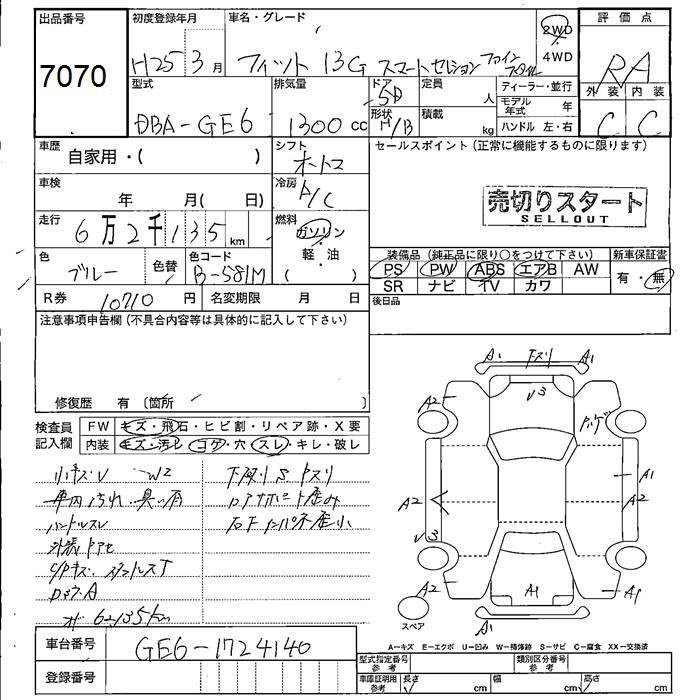 出品番号
7070
初度登録年月
H25 3月
車名・グレード
フィット 13G スマートセレクション ファインスタイル
2WD
4WD
評価点
RA
外装 内装
C C
型式
DBA-GE6
排気量
1300 cc
ドア
5D
形状
H/B
定員
人
積載
kg
ディーラー・並行
モデル年式 年
ハンドル 左・右
車歴
自家用・( )
シフト
オートマ
セールスポイント(正常に機能するものに限ります)
売切りスタート
SELLOUT
車検
年 月( 日)
冷房
A/C
走行
6万2千135km
燃料
ガソリン
軽・油
( )
色
ブルー
色替
色コード
B-581M
装備品(純正品に限り○をつけて下さい)
PS PW ABS エアB AW
SR ナビ TV カワ
新車保証書
有・無
R券
10710 円
名変期限 月 日
後日品
注意事項申告欄(不具合内容等は具体的に記入して下さい)
修復歴 有〔箇所 〕
検査員記入欄
FW キズ・飛石・ヒビ割・リペア跡・X要
内装 キズ・汚レ・コゲ・穴・スレ・キレ・破レ
小キズU W2
車内汚れ 臭い有
ハンドルスレ
外装色アセ
下廻りSキズリ
A1 下スリ A1
A2 U3
A1
A2 A2
U3
A2 A1 A1
A1
スペア
A-キズ E-エクボ U-凹み W-補修跡 S-サビ C-腐食 XX-交換済
車台番号
GE6-1724140
登録番号
型式指定番号 参考
類別区分番号 参考
車庫証明用 参考
長さ cm
幅 cm
高さ cm